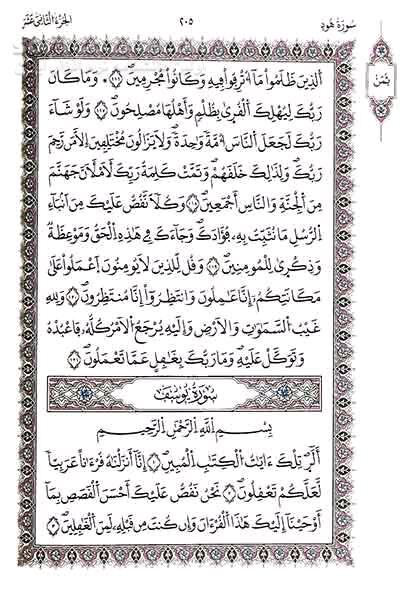 سُورَةُ هُودٍ ٢٠٥ الجُزْءُ الثَّانِي عَشَر
ثُمُن
اَلذِينَ ظَلَمُوا مَآ أُتْرِفُوا فِيهِ وَكَانُوا مُجْرِمِينَ وَمَا كَانَ
رَبُّكَ لِيُهْلِكَ اَلْقُرَىٰ بِظُلْمٍ وَأَهْلُهَا مُصْلِحُونَ وَلَوْ شَآءَ
رَبُّكَ لَجَعَلَ اَلنَّاسَ أُمَّةً وَٰحِدَةً وَلَا يَزَالُونَ مُخْتَلِفِينَ إِلَّا مَن رَّحِمَ
رَبُّكَ وَلِذَٰلِكَ خَلَقَهُمْ وَتَمَّتْ كَلِمَةُ رَبِّكَ لَأَمْلَأَنَّ جَهَنَّمَ
مِنَ اَلْجِنَّةِ وَالنَّاسِ أَجْمَعِينَ وَكُلّاً نَّقُصُّ عَلَيْكَ مِنَ اَنۢبَآءِ
اِلرُّسُلِ مَا نُثَبِّتُ بِهِۦ فُؤَادَكَ وَجَآءَكَ فِي هَٰذِهِ اِلْحَقُّ وَمَوْعِظَةٌ
وَذِكْرَىٰ لِلْمُومِنِينَ وَقُل لِّلذِينَ لَا يُومِنُونَ اَعْمَلُوا عَلَىٰ
مَكَانَتِكُمُۥٓ إِنَّا عَٰمِلُونَ وَانتَظِرُوٓا إِنَّا مُنتَظِرُونَ وَلِلهِ
غَيْبُ اُلسَّمَٰوَٰتِ وَالَارْضِ وَإِلَيْهِ يَرْجِعُ اُلَامْرُ كُلُّهُۥ فَاعْبُدْهُ
وَتَوَكَّلْ عَلَيْهِ وَمَا رَبُّكَ بِغَٰفِلٍ عَمَّا تَعْمَلُونَ
سُورَةُ يُوسُفَ
بِسْمِ اِللَّهِ اِلرَّحْمَٰنِ اِلرَّحِيمِ
أَلَٓرۖ تِلْكَ ءَايَٰتُ اُلْكِتَٰبِ اِلْمُبِينِ إِنَّآ أَنزَلْنَٰهُ قُرْءَٰناً عَرَبِيّاً
لَّعَلَّكُمْ تَعْقِلُونَ نَحْنُ نَقُصُّ عَلَيْكَ أَحْسَنَ اَلْقَصَصِ بِمَآ
أَوْحَيْنَآ إِلَيْكَ هَٰذَا اَلْقُرْءَانَ وَإِن كُنتَ مِن قَبْلِهِۦ لَمِنَ اَلْغَٰفِلِينَ